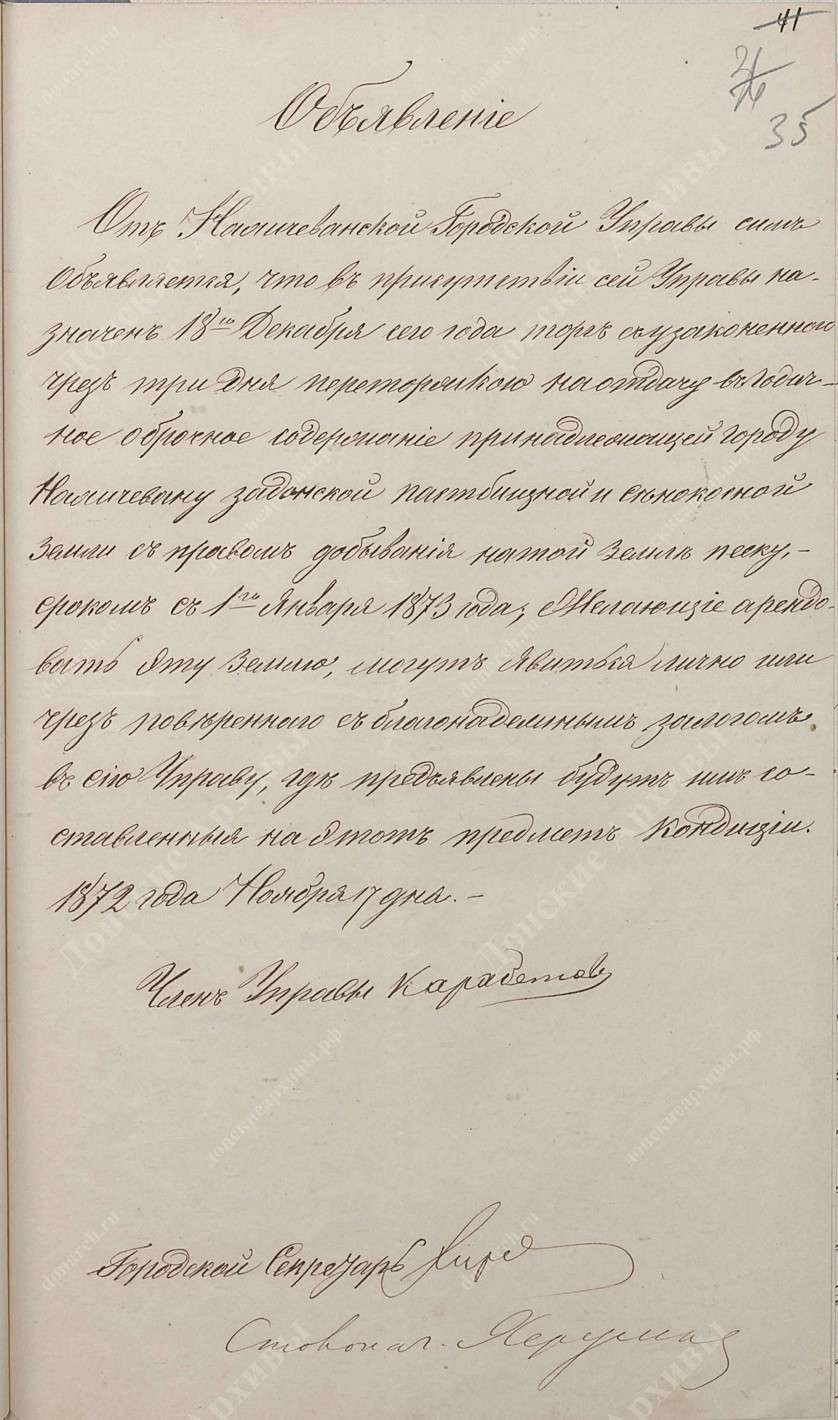 41
35
Объявленіе
Отъ Нахичеванской Городской Управы симъ
объявляется, что въ присутствіи сей Управы на-
значенъ 18го Декабря сего года торгъ съ узаконенною
чрезъ три дня переторжкою на отдачу въ годич-
ное оброчное содержаніе принадлежащей городу
Нахичевану задонской пастбищной и сенокосной
земли съ правомъ добыванія на той землѣ песку, –
срокомъ съ 1го Января 1873 года; Желающіе арендо-
вать эту землю, могутъ явиться лично или
чрезъ повѣреннаго съ благонадежнымъ залогомъ
въ сію Управу, гдѣ предъявлены будутъ имъ со-
ставленныя на этотъ предметъ кондиціи.
1872 года Ноября 17 дня. –
Членъ Управы Карабетовъ
Городской Секретарь
Столонач.